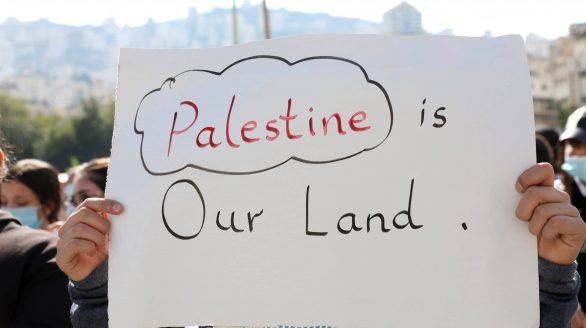 Palestine is
Our Land.